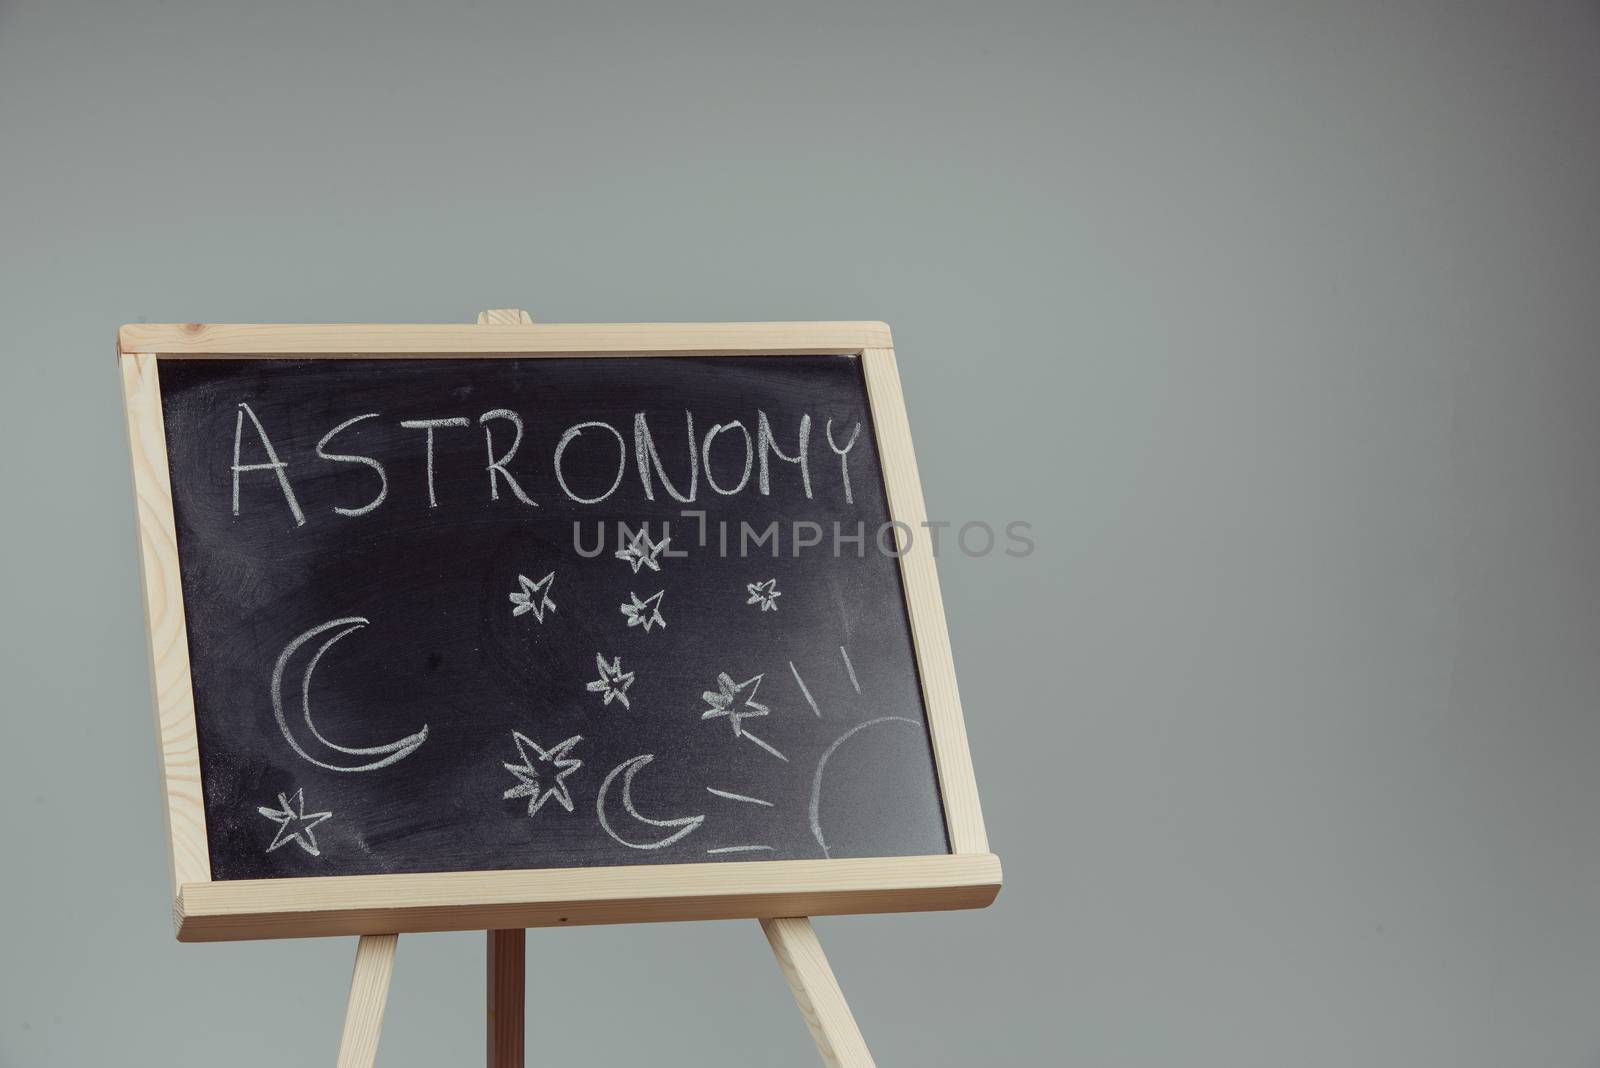 ASTRONOMY
UNLIMPHOTOS